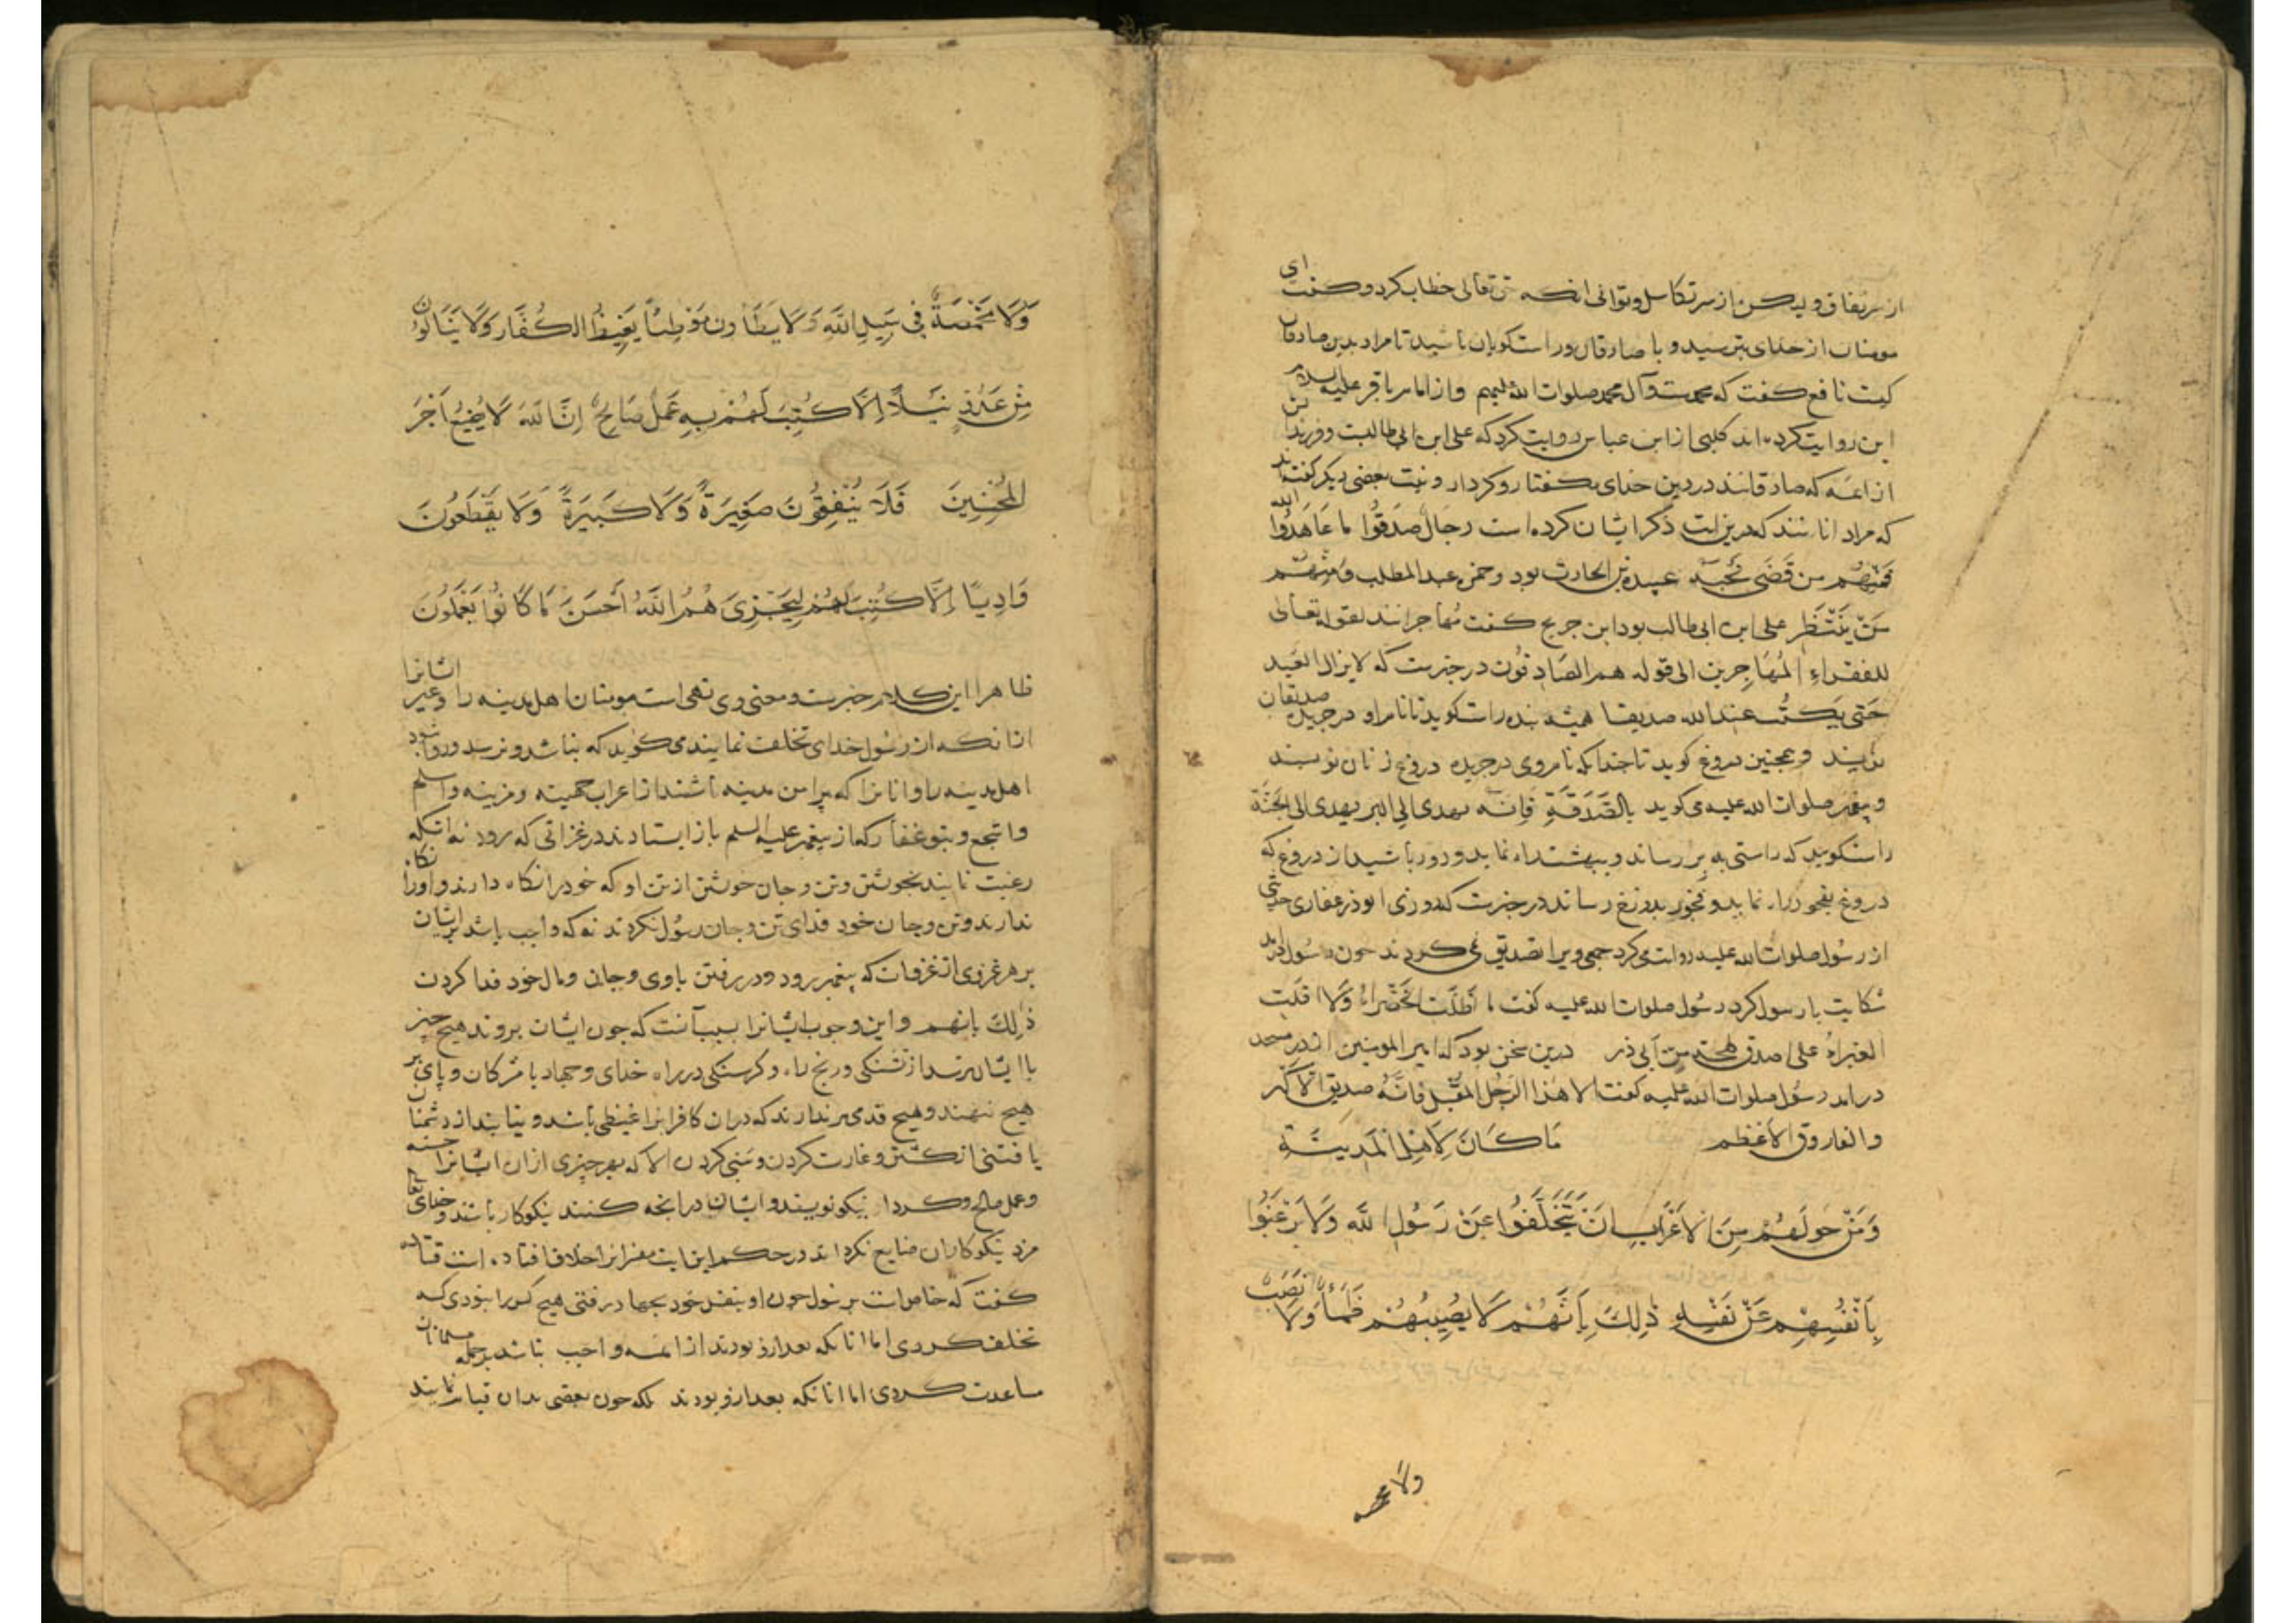 از سر نفاق ولیکن از سر تکاسل و توانی انکه حق تعالی خطاب کرد و کفت ای
مومنان از خدای بترسید و با صادقان و راستکویان باشید تا مراد بدین صادقان
کیست نافع کفت که محمدست و آل محمد صلوات الله علیهم و از امام باقر علیه السلام
این روایت کرده‌اند کلبی از ابن عباس روایت کرد که علی ابن ابی طالبست و فرزندان
از ائمه که صادقانند در دین خدای بکفتار و کردار و نیت بعضی دیکر کفتند
که مراد انانند که درین ایت ذکر ایشان کرده است رجال صدقوا ما عَاهَدُوا الله
فَمِنْهُم من قَضَی نَحْبَهُ عبیده بن الحارث بود و حمزه عبد المطلب وَمِنْهُمْ
مَنْ یَنْتَظِر علی ابن ابی طالب بود ابن جریج کفت مُهاجرانند لقوله تعالی
للفقراءِ المُهَاجِرین الی قوله هم الصَادِقُون در خبرست که لا یزال العَبد
حَتی یُکتَبَ عند الله صدیقا همیشه بنده راست کوید تا نام او در جریدۀ صدیقان
نویسند و همچنین دروغ کوید تا چندانکه نام وی در جریده دروغ زنان نویسند
و پیغمبر صلوات الله علیه می کوید بِالصَدَقَةِ فَاِنَّه یهدی اِلی البر یهدی الی الجَنَّة
راست کویید که راستی به بِر رساند و ببهشت راه نماید و دور باشید از دروغ که
دروغ بفجور راه نماید و فجور بدوزخ رساند در خبرست که روزی ابوذر غفاری حدیثی
از رسُول صلوات الله علیه روایت می کرد جمعی ویرا تصدیق نمی کردند چون رسُول امد
شکایت با رسول کرد رسُول صلوات الله علیه کفت ما اَظَلَّت الخَضْرَاءُ وَلَا اقلَّت
الغبراءُ علی اصدق لهجة مِن اَبی ذر درین سخن بود که امیر المومنین از در مسجد
درامد رسُول صلوات الله علیه کفت الا هَذا الرَجُل المُقبِل فَاِنَّهُ صدیق الاکبر
والفاروق الاَعْظم مَا کَانَ لِاَهْلِ الْمَدِینَةِ
وَمَنْ حَولَهُمْ مِنَ الاَعْرَابِ اَنْ یَتَخَلَّفُوا عَنْ رَسُولِ اللَّه وَلَا یَرْغَبُوا
بِاَنْفُسِهِمْ عَنْ نَفْسِهِ ذٰلِکَ بِاَنَّهُمْ لَا یُصِیبُهُمْ ظَمَأٌ وَلَا نَصَبٌ
ولا مخمصه
وَلَا مَخْمَصَةٌ فِی سَبِیلِ اللَّهِ وَلَا یَطَأُونَ مَوْطِئاً یَغِیظُ الکُفَّارَ وَلَا یَنَالُونَ
مِنْ عَدُوٍّ نَیْلًا اِلَّا کُتِبَ لَهُمْ بِهِ عَمَلٌ صَالِحٌ اِنَّ اللَّهَ لَا یُضِیعُ اَجْرَ
المُحْسِنِینَ فَلَا یُنْفِقُونَ صَغِیرَةً وَلَا کَبِیرَةً وَلَا یَقْطَعُونَ
وَادِیًا اِلَّا کُتِبَ لَهُمْ لِیَجْزِیَ هُمُ اللَّهُ اَحْسَنَ مَا کَانُوا یَعْمَلُونَ
ظاهر این کلام خبرست و معنی وی نهی است مومنان اهل مدینه را و غیر ایشانرا
انانکه از رسُول خدای تخلف نمایند می کوید که نباشد و نرسد و روا نبود
اهل مدینه را و انانرا که پیرامن مدینه باشند از اعراب جهینه و مزینه و اسلم
و اشجع و بنو غفار که از پیغمبر علیه السلم باز ایستادند در غزاتی که رود نه انکه
رغبت نمایند بخویشتن و تن و جان خویشتن از تن او که خود را نکاه دارند و اورا نکاه
ندارند و تن و جان خود فدای تن و جان رسُول نکردند نه که واجب باشد بر ایشان
بر هر غزوی از غزوات که پیغمبر رود و در رفتن با وی و جان و مال خود فدا کردن
ذٰلِکَ بانهم و این وجوب ایشانرا بسبب آنست که چون ایشان بروند هیچ چیز
با ایشان نرسد از تشنکی و رنج راه و کرسنکی در راه خدای و جهاد با مشرکان و پای بر
هیچ ننهند و هیچ قدمی برندارند که دران کافرانرا غیظی باشد و نیابند از دشمنان
یافتنی از کشتن و غارت کردن و سَبی کردن الا که بهر چیزی ازان ایشانرا حسنه
و عمل صالح و کردار نیکو نویسند و ایشان درانچه کنند نیکوکار باشند و خدای تعالی
مزد نیکوکاران ضایع نکرداند در حکم این ایت مفسرانرا خلاف افتاده است قتاده
کفت که خاص است برسُول چون او بنفس خود بجهاد رفتی هیچ کس را نبودی که
تخلف کردی اما انانکه بعد ازو بودند از ائمه واجب نباشد بر جمله مسلمانان
مساعدت کردی اما انانکه بعد ازو بودند بلکه چون بعضی بدان قیام نمایند